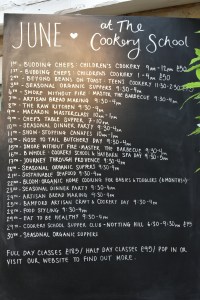 JUNE ♥ at The Cookery School
1ST - BUDDING CHEFS' CHILDREN'S COOKERY 9am - 12pm £50
1ST - BUDDING CHEFS' CHILDREN'S COOKERY 1-4pm £50
2ND - BEYOND BEANS ON TOAST - TEENS COOKERY 11:30-2:30
3RD - SEASONAL ORGANIC SUPPERS 9:30-4pm
4TH - SMOKE WITHOUT FIRE - MASTER THE BARBECUE 9:30-4pm
ARTISAN BREAD MAKING 9:30-4pm
THE RAW KITCHEN 9:30-4pm
MACARON MASTERCLASS
CHEFS TABLE SUPPER 7-
SEASONAL DINNER PARTY 9:30-4pm
SHOW-STOPPING CANAPES 10am-
NOSE TO TAIL BUTCHERY DAY 9:30-4pm
SMOKE WITHOUT FIRE - MASTER THE BARBECUE 9:30-4pm
BWHOLE - COOKERY SCHOOL & SPA DAY 9:30-5pm
JOURNEY THROUGH PROVENCE 9:30-4pm
SEASONAL ORGANIC SUPPERS 9:30-4pm
SUSTAINABLE SEAFOOD 9:30-4pm
BLOOM: ORGANIC HOME COOKING FOR BABIES & TODDLERS (6 MONTHS+)
SEASONAL DINNER PARTY 9:30-4pm
ARTISAN BREAD MAKING 9:30-4pm
BAMFORD ARTISAN CRAFT & COOKERY DAY 9:30-4pm
FOOD STYLING 9:30-4pm
EAT TO BE HEALTHY 9:30-4pm
COOKERY SCHOOL SUPPER CLUB - NOTTING HILL 6:30-9:30pm £75
30TH - SEASONAL ORGANIC SUPPERS
FULL DAY CLASSES £175/ HALF DAY CLASSES £95/ POP IN OR
VISIT OUR WEBSITE TO FIND OUT MORE..